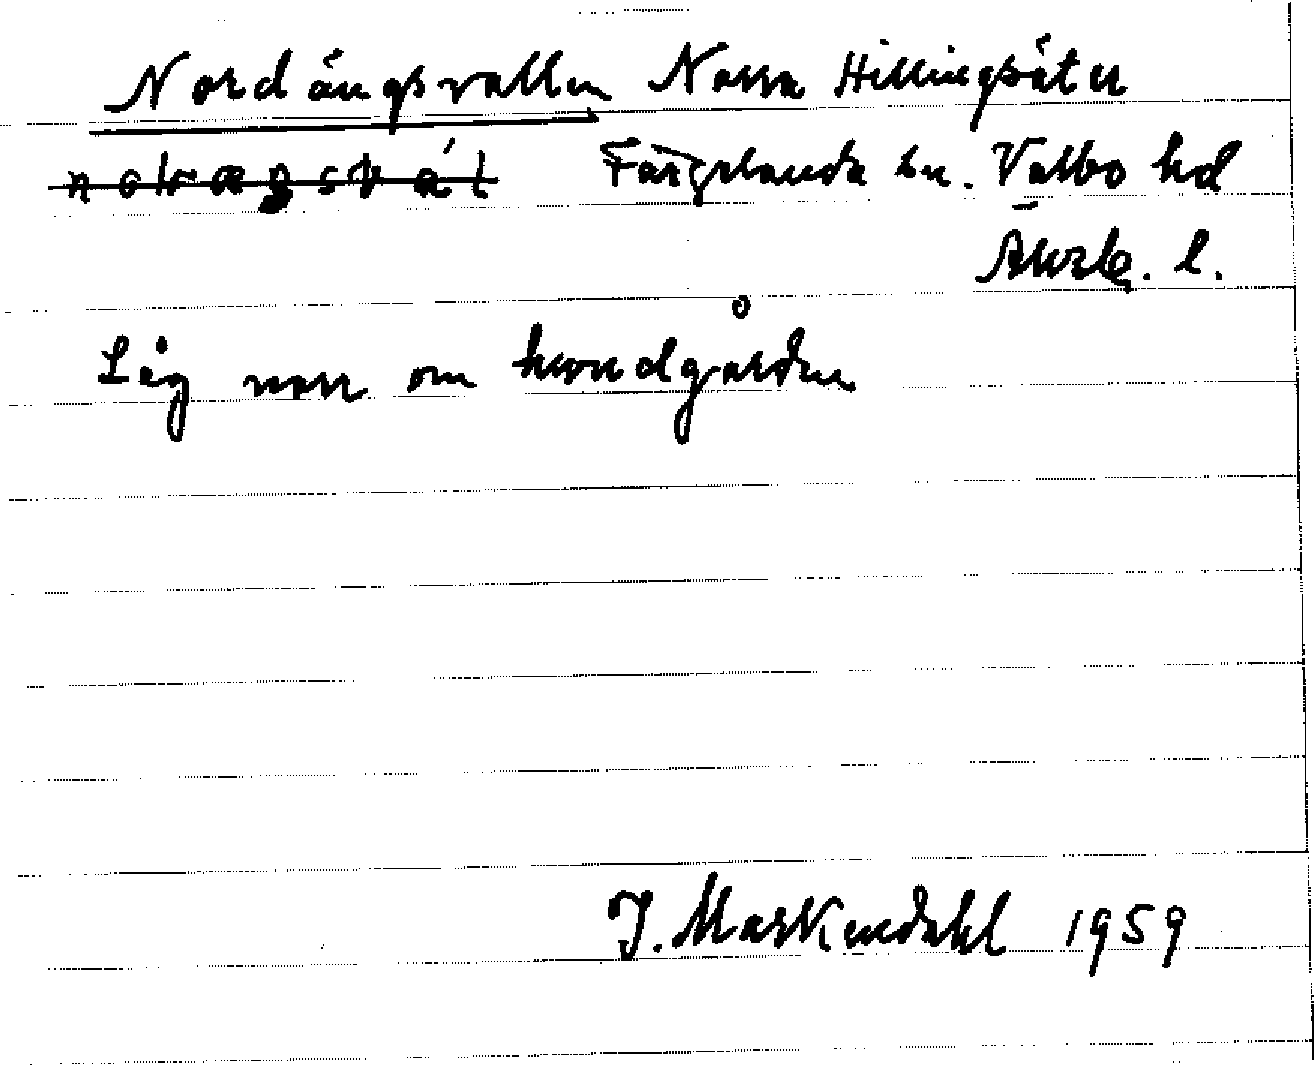 Nordängsvallen Norra Hillingsäter
Färgelanda sn. Valbo hd
Älvsb. l.
Låg norr om huvudgården
J. Markendahl 1959